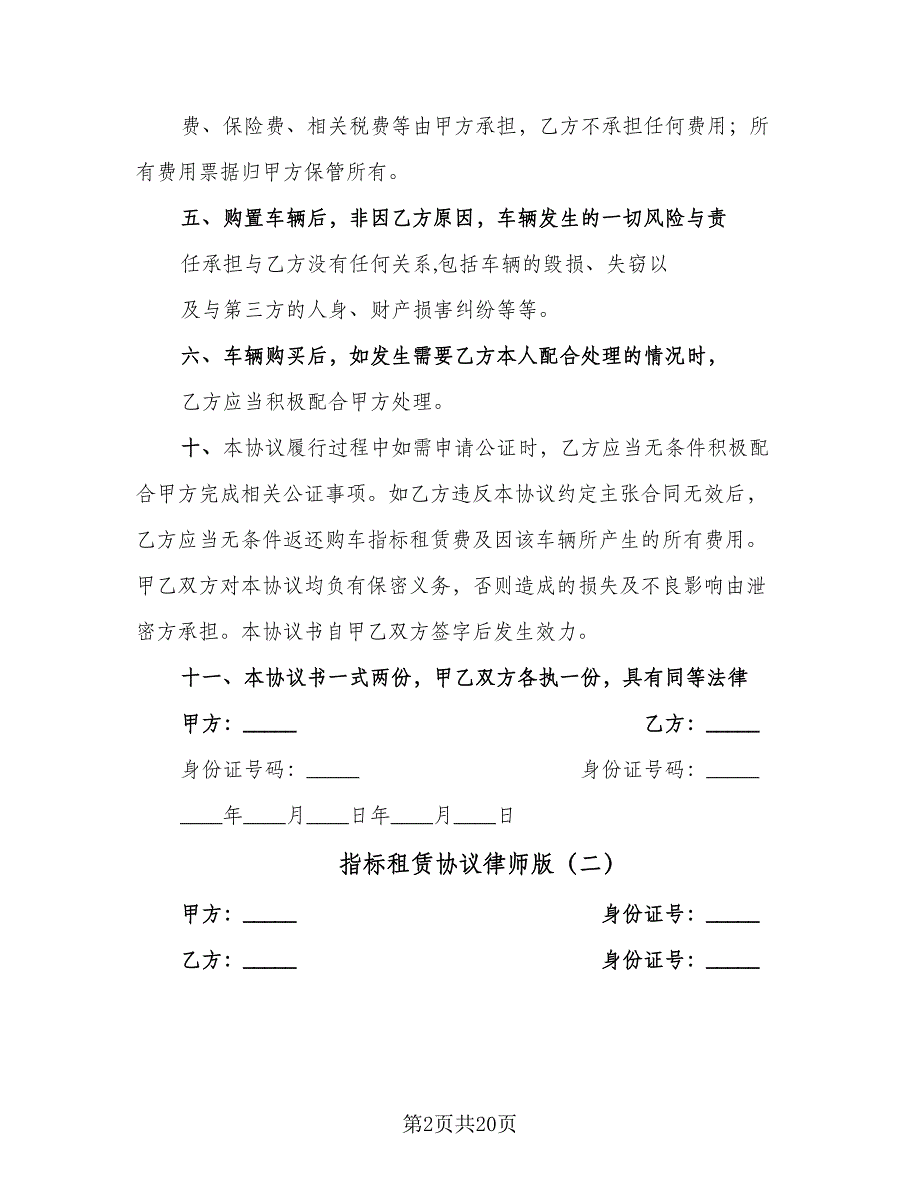 费、保险费、相关税费等由甲方承担，乙方不承担任何费用；所
有费用票据归甲方保管所有。
五、购置车辆后，非因乙方原因，车辆发生的一切风险与责
任承担与乙方没有任何关系,包括车辆的毁损、失窃以
及与第三方的人身、财产损害纠纷等等。
六、车辆购买后，如发生需要乙方本人配合处理的情况时，
乙方应当积极配合甲方处理。
十、本协议履行过程中如需申请公证时，乙方应当无条件积极配
合甲方完成相关公证事项。如乙方违反本协议约定主张合同无效后，
乙方应当无条件返还购车指标租赁费及因该车辆所产生的所有费用。
甲乙双方对本协议均负有保密义务，否则造成的损失及不良影响由泄
密方承担。本协议书自甲乙双方签字后发生效力。
十一、本协议书一式两份，甲乙双方各执一份，具有同等法律
甲方：_____ 乙方：_____
身份证号码：_____ 身份证号码：_____
____年____月____日年____月____日
指标租赁协议律师版（二）
甲方：_____ 身份证号：_____
乙方：_____ 身份证号：_____
第2页共20页